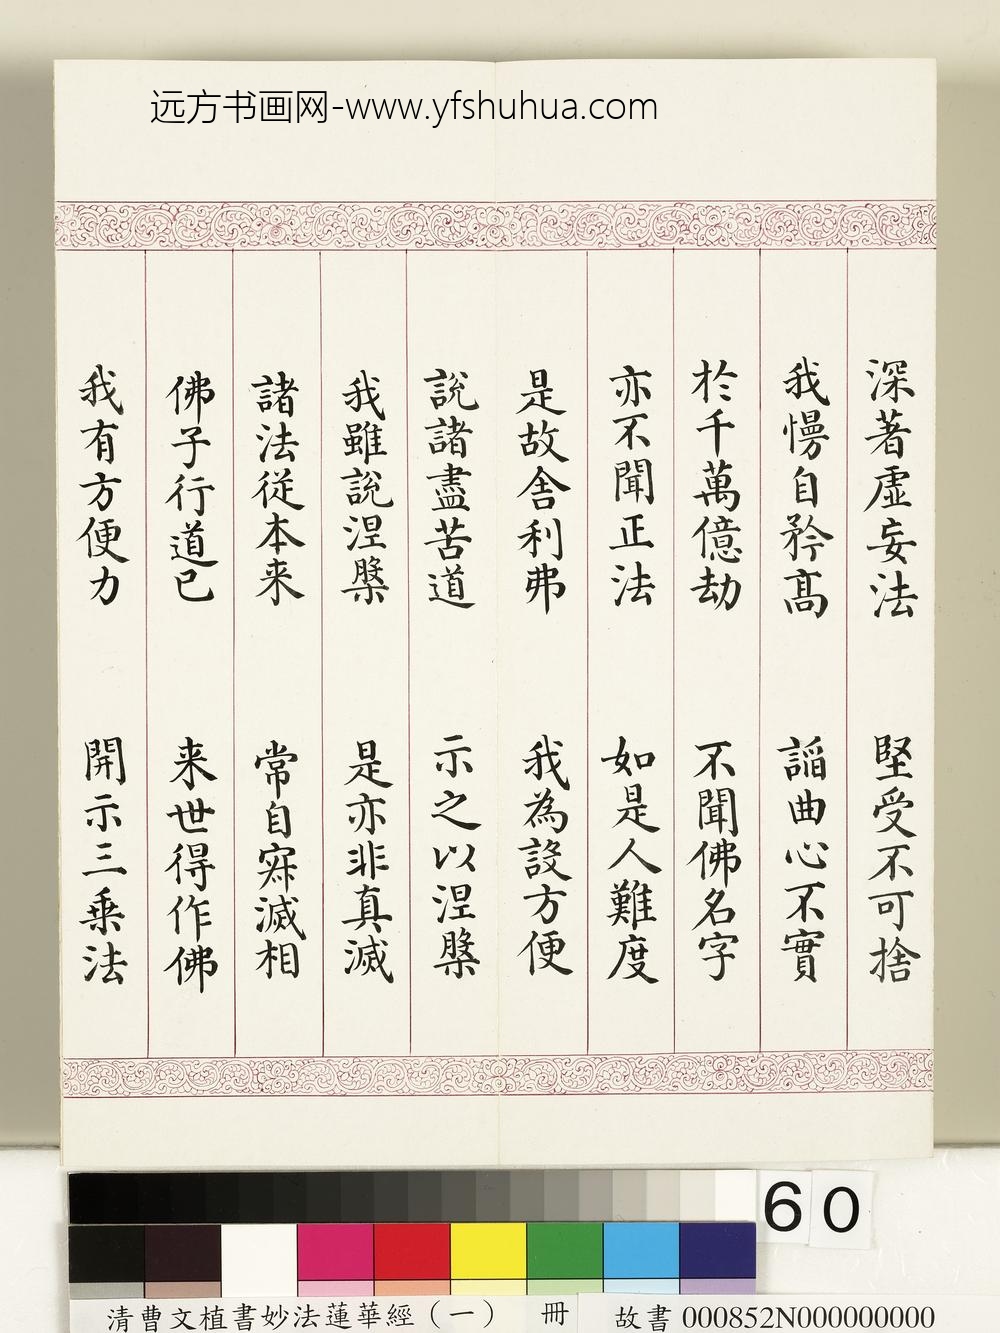 远方书画网-www.yfshuhua.com
深著虛妄法 堅受不可捨
我慢自矜高 諂曲心不實
於千萬億劫 不聞佛名字
亦不聞正法 如是人難度
是故舍利弗 我為設方便
說諸盡苦道 示之以涅槃
我雖說涅槃 是亦非真滅
諸法從本来 常自寂滅相
佛子行道已 来世得作佛
我有方便力 開示三乘法
60
清曹文植書妙法蓮華經(一) 冊 故書 000852N000000000